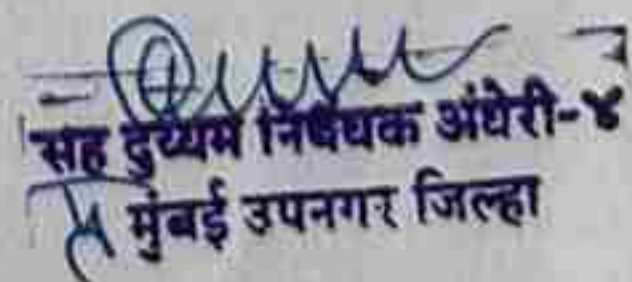 सह दुय्यम निबंधक अंधेरी-४
मुंबई उपनगर जिल्हा